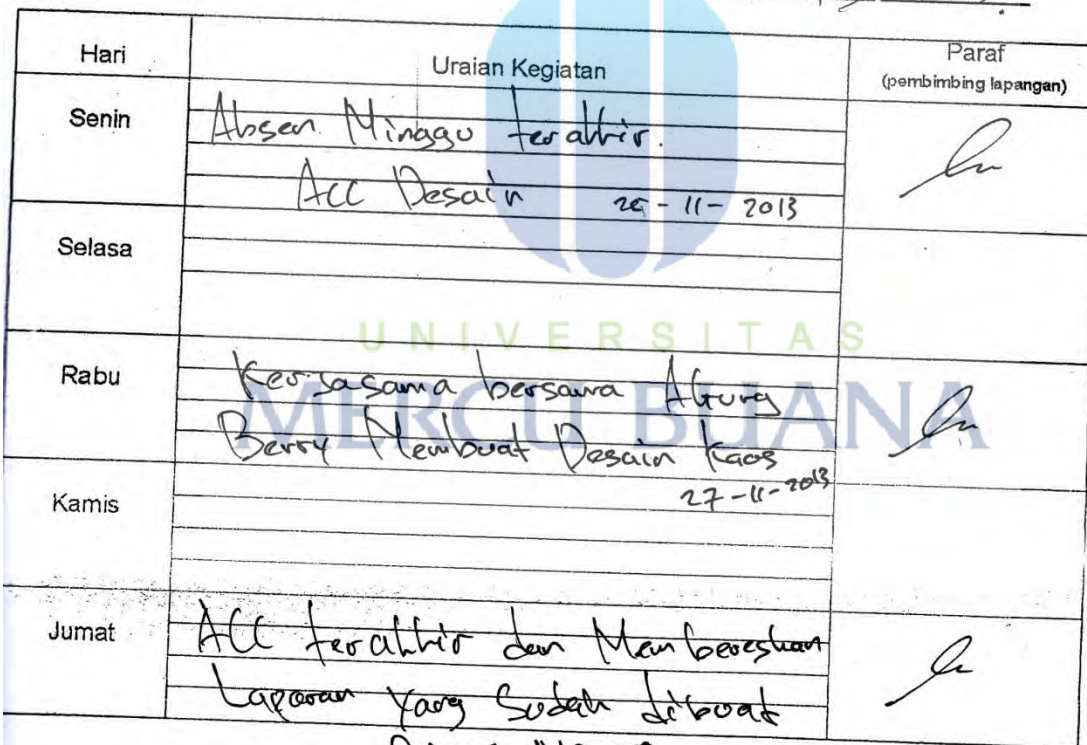 Hari Uraian Kegiatan Paraf
(pembimbing lapangan)
Senin Absen Minggu terakhir.
ACC Desain 25 - 11 - 2013
Selasa
UNIVERSITAS
MERCU BUANA
Rabu Kerjasama bersama Agung
Berry Membuat Desain Kaos
27 - 11 - 2013
Kamis
Jumat ACC terakhir dan Membereskan
Laporan yang Sudah dibuat